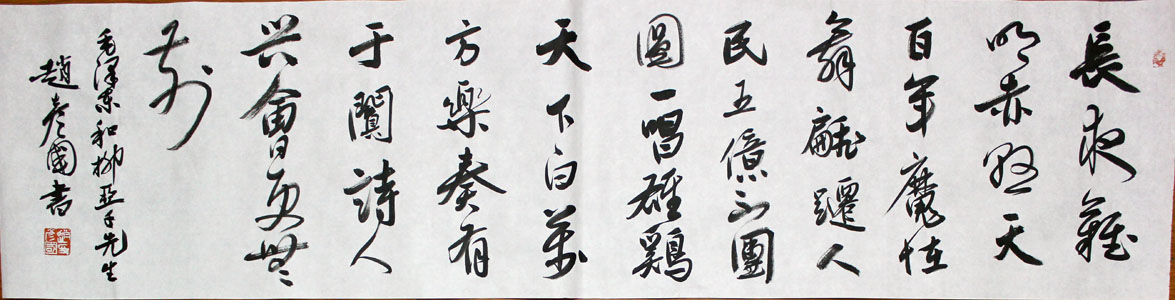 長夜難
明赤县天
百年魔怪
舞翩躚人
民五億不團
圓一唱雄鷄
天下白萬
方樂奏有
于闐詩人
兴會更無
前
毛澤東和柳亞子先生
趙彦國書